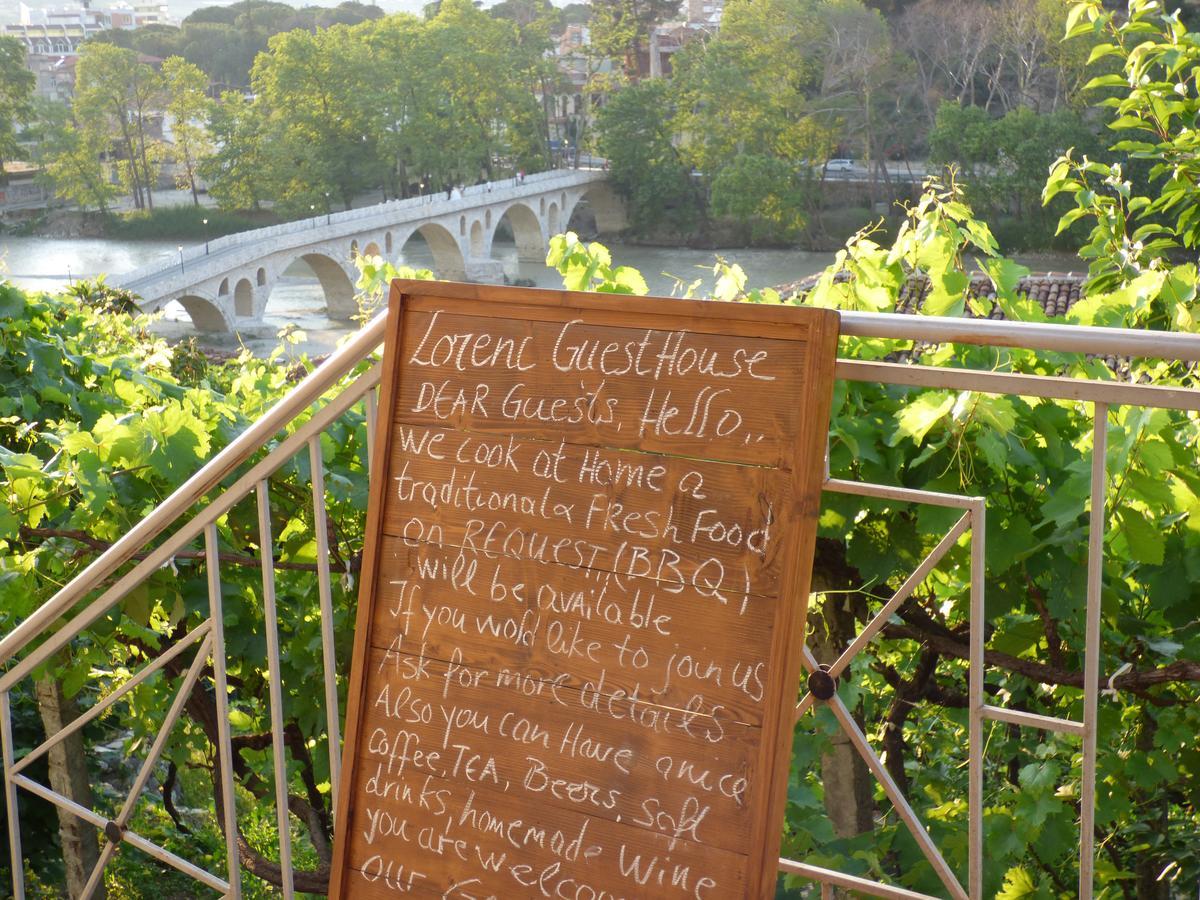 Lorenc GuestHouse
DEAR Guests, Hello,,
we cook at Home a
traditional & FResh Food
on REQUEST,,(BBQ)
will be available
If you wold like to join us
Ask for more details
Also you can Have a nice
coffee, TEA, Beers, Saft
drinks, homemade Wine
you are welcom
our